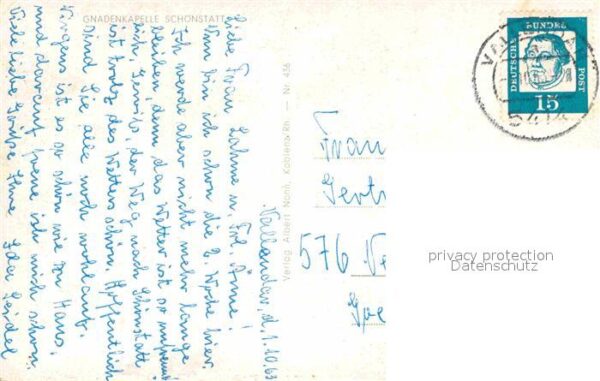 GNADENKAPELLE SCHÖNSTATT
Vallendar, d. 1.10.63
Liebe Frau Lahme u. Frl. Änne!
Nun bin ich schon die 2. Woche hier.
Ich werde aber nicht mehr lange
bleiben, denn das Wetter ist so unfreund
lich, Gewiß, der Weg nach Schönstatt
ist trotz des Wetters schön. Hoffentlich
sind Sie alle noch wohlauf.
Nirgens ist es so schön wie zu Haus.
und darauf freue ich mich schon.
Viele liebe Grüße Ihre
Verlag Albert Nohl, Koblenz/Rh. — Nr. 436
DEUTSCHE BUNDESPOST
15
Frau
Gertr
576
privacy protection
Datenschutz